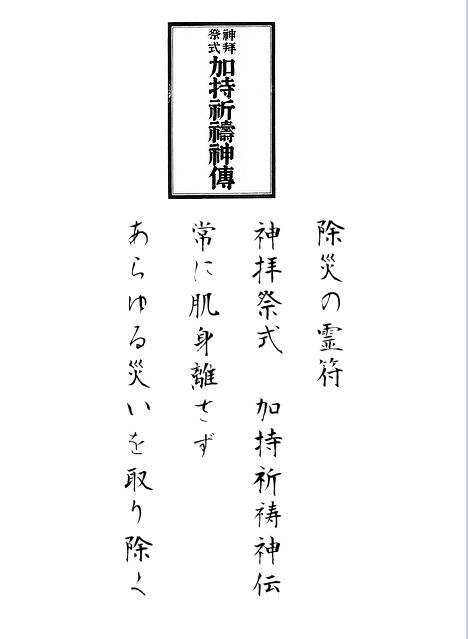 神拜
祭式
加持祈禱神傳
除災の霊符
神拝祭式　加持祈祷神伝
常に肌身離さず
あらゆる災いを取り除く